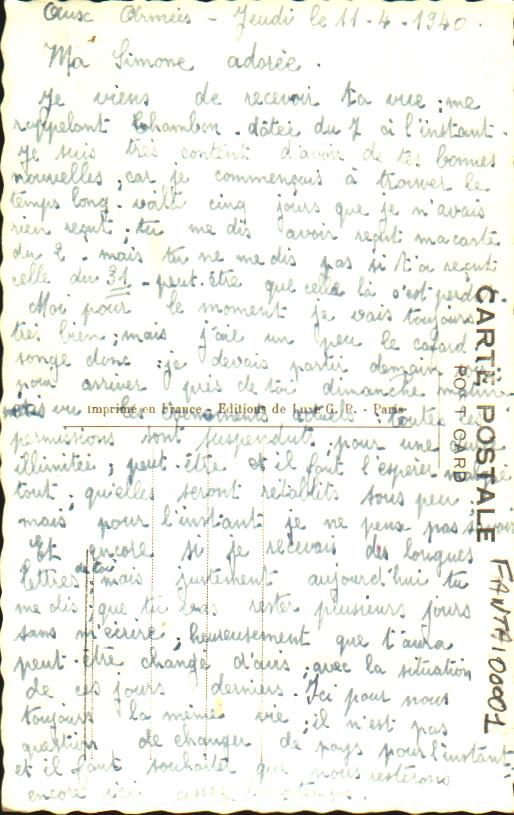 Aux Armées - Jeudi le 11-4-1940.
Ma Simone adorée.
Je viens de recevoir ta vue ; me
rappelant Chambon. dâtée du 7 à l'instant.
Je suis très content d'avoir de tes bonnes
nouvelles ; car je commençais à trouver le
temps long. voilà cinq jours que je n'avais
rien reçut ; tu me dis avoir reçut ma carte
du 2. mais tu ne me dis pas si t'a reçut
celle du 31 - peut-être que celle là c'est perdu
Moi pour le moment je vais toujours
très bien ; mais j'ai un peu le cafard
songe donc ; je devais partir demain
pour arriver près de toi dimanche
vu les toutes ces
permissions sont suspendut, pour une
illimitée ; peut-être et il faut l'espérer
tout, qu'elles seront rétablits sous peu
mais pour l'instant je ne peux pas
Et encore si je recevais des longues
lettres de toi mais justement aujourd'hui tu
me dis que tu vas rester plusieurs jours
sans m'écrire, heureusement que t'aura
peut-être changé d'avis, avec la situation
de ces jours derniers. Ici pour nous
toujours la même vie ; il n'est pas
question de changer de pays pour l'instant
et il faut souhaiter que nous resterons
encore ici assez longtemps.
Imprimé en France - Editions de Luxe G. P. - Paris
CARTE POSTALE
POST CARD
FANTAI00001